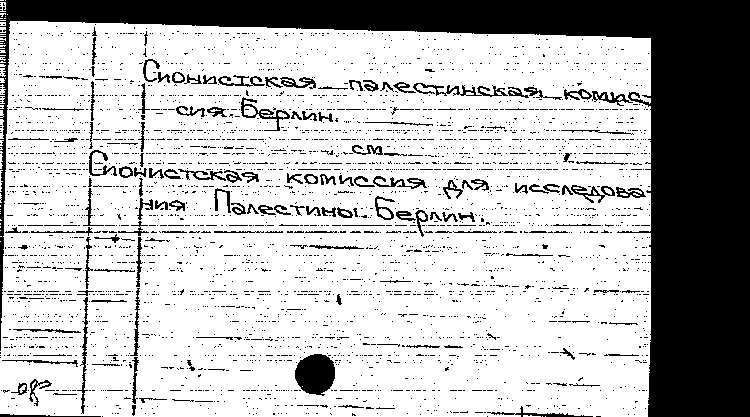 Сионистская палестинская комис-
сия. Берлин.
см.
Сионистская комиссия для исследова-
ния Палестины. Берлин.